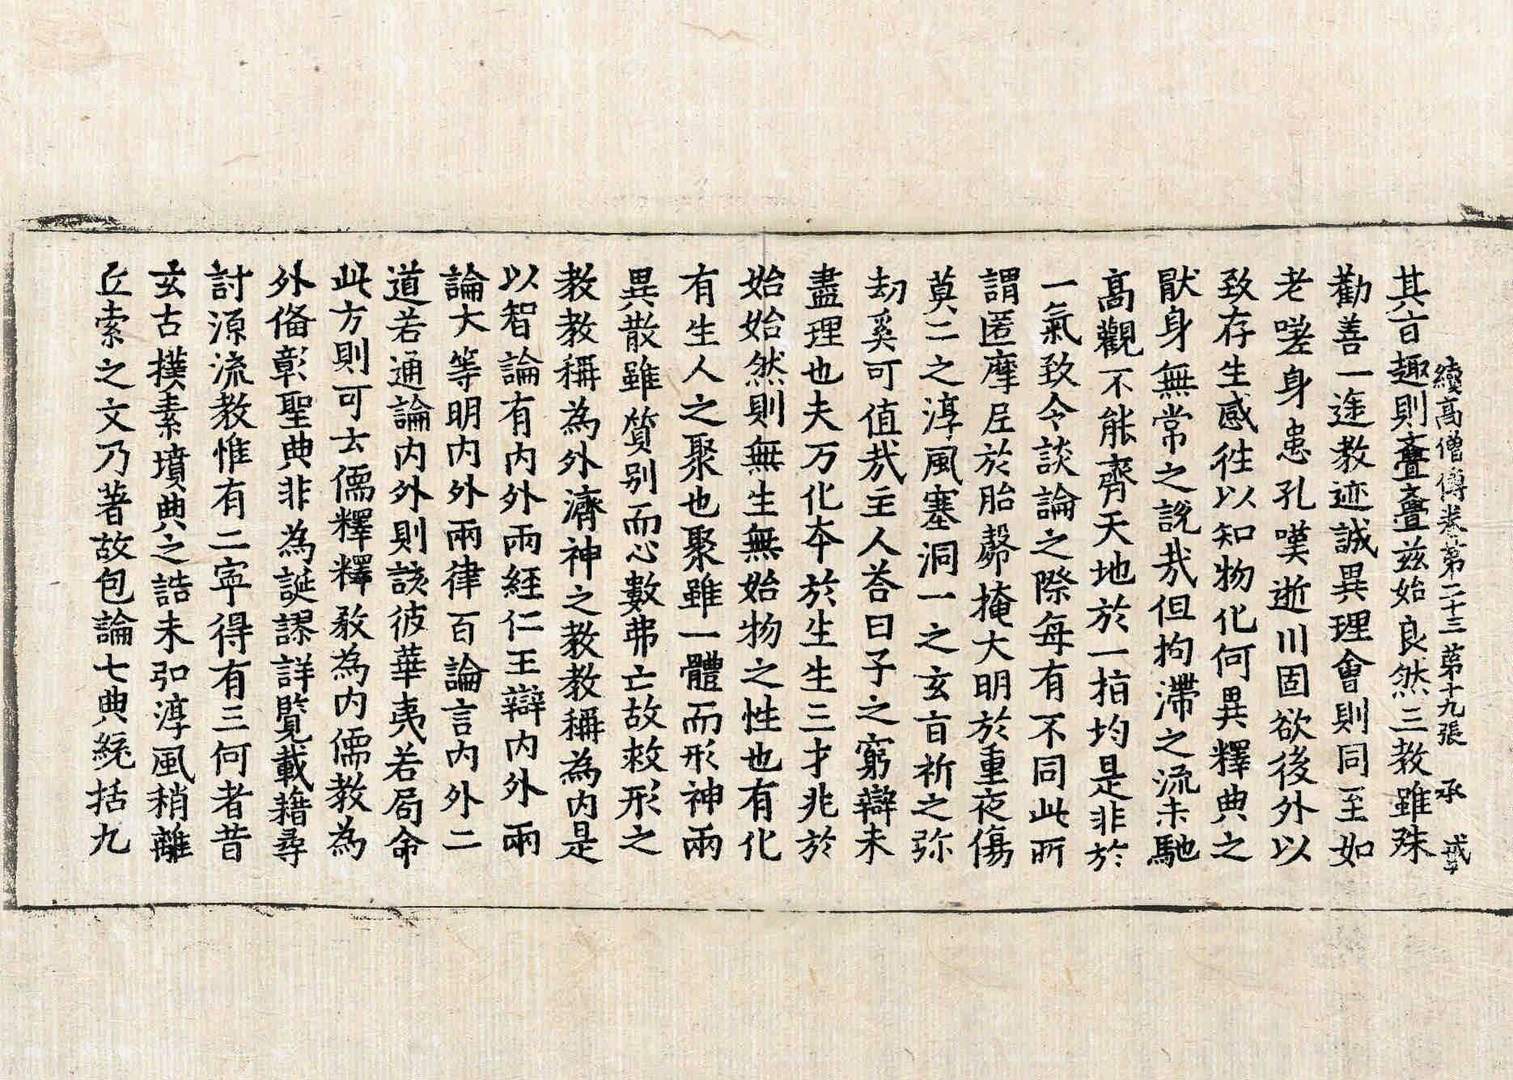 續高僧傳卷第二十三 第十九張 承
其旨趣則亹亹兹始良然三教雖殊
勸善一途教迹誠異理會則同至如
老嗟身患孔嘆逝川固欲後外以
致存生感徃以知物化何異釋典之
猒身無常之說㢤但拘滯之流未馳
高觀不能齊天地於一指均是非於
一氣致令談論之際每有不同此所
謂匿摩尼於胎㲉掩大明於重夜傷
莫二之淳風塞洞一之玄旨祈之弥
劫奚可值㢤主人荅曰子之窮辯未
盡理也夫万化夲於生生三才兆於
始始然則無生無始物之性也有化
有生人之聚也聚雖一體而形神兩
異散雖質别而心數弗亡故救形之
教教稱為外濟神之教教稱為内是
以智論有内外兩經仁王辯内外兩
論大等明内外兩律百論言内外二
道若通論内外則該彼華夷若局命
此方則可云儒釋釋教為内儒教為
外俻彰聖典非為誕謬詳覽載籍尋
討源流教惟有二寧得有三何者昔
玄古樸素墳典之誥未弘淳風稍離
丘索之文乃著故包論七典統括九